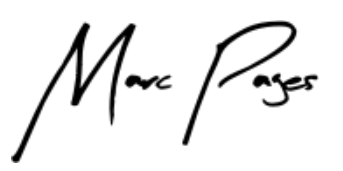 Marc Pages